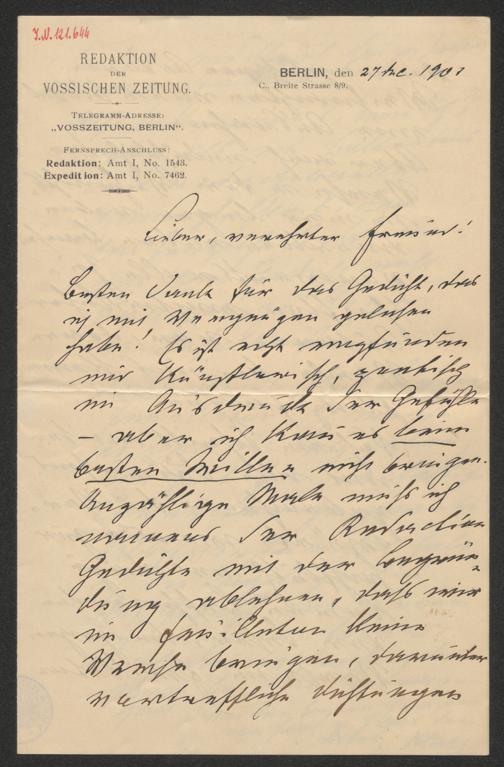 J.N. 121.644
REDAKTION
DER
VOSSISCHEN ZEITUNG.
TELEGRAMM-ADRESSE:
„VOSSZEITUNG, BERLIN“.
FERNSPRECH-ANSCHLUSS:
Redaktion: Amt I, No. 1543.
Expedition: Amt I, No. 7462.
BERLIN, den 27 Dec. 1901
C., Breite Strasse 8/9.
Lieber, verehrter Freund!
Besten Dank für das Gedicht, das
ich mit Vergnügen gelesen
habe! Es ist echt empfunden
und künstlerisch, poetisch
im Ausdruck der Gefühle
– aber ich kann es beim
besten Willen nicht bringen.
Unzählige Male muß ich
namens der Redaction
Gedichte mit der Begrün-
dung ablehnen, daß wir
im Feuilleton keine
Verse bringen, darunter
vortreffliche Dichtungen